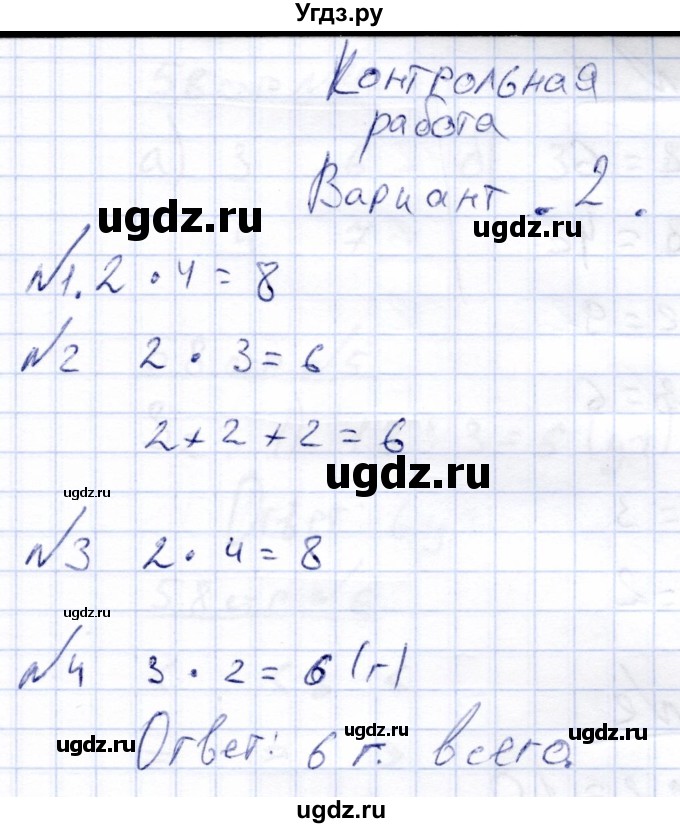 Угдз.ру
Контрольная
работа
Вариант . 2 .
ugdz.ru
ugdz.ru
№1. 2 · 4 = 8
№2 2 · 3 = 6
2 + 2 + 2 = 6
ugdz.ru
ugdz.ru
№3 2 · 4 = 8
ugdz.ru
№4 3 · 2 = 6 (г)
Ответ: 6 г. всего.
ugdz.ru
ugdz.ru
ugdz.ru
ugdz.ru